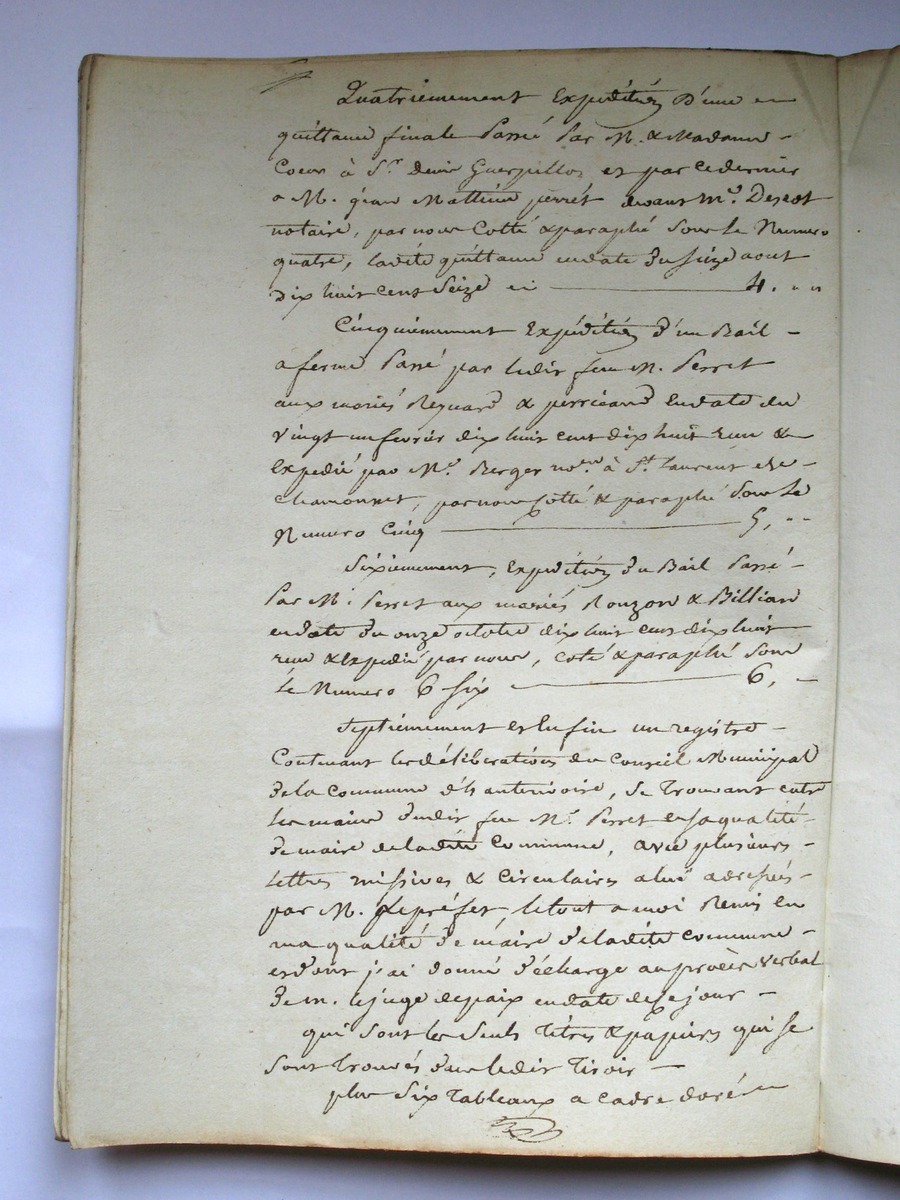 Quatriemement Expedition D'une
quittance finale Passé Par M. & Madame
Coeur à Sr. denis Guerpillon et par ce dernier
a M. jean Matthieu perret devant me. Descot
notaire, par nous Cotté & paraphé sous le Numero
quatre, ladite quittance en date du seize aout
dix huit cent Seize ci 4. " "
Cinquiemement Expédition d'un Bail
a ferme Passé par ledit feu M. Perret
aux mariés Reynard & en date du
vingt un fevrier dix huit cent dix huit recu &
Expedié par Me. Berger nore. à St. Laurent de
Chamousset, par nous Cotté & paraphé Sous le
Numero Cinq 5, " "
Sixiemement, Expedition du Bail Passé
Par M. Perret aux mariés Rouzon & Billiard
en date du onze octobre dix huit cent dix huit
recu & Expedié par nous, coté & paraphé Sous
le Numero 6 six 6,
Septiemement et Enfin un registre
Contenant les déliberations du Conseil Municipal
de la Commune d', se Trouvant entre
les mains dudit feu M. Perret en sa qualité
de maire de ladite Commune, avec plusieurs
lettres missives & circulaires a lui adressés
par M. le préfet, le tout a moi Remis en
ma qualité de maire de ladite commune
et dont j'ai donné décharge au procès verbal
de m. le juge de paix en date de ce jour
qui Sont les Seuls Titres & papiers qui se
Sont Trouvés dans ledit Tiroir
plus Six Tableaux a Cadre doré